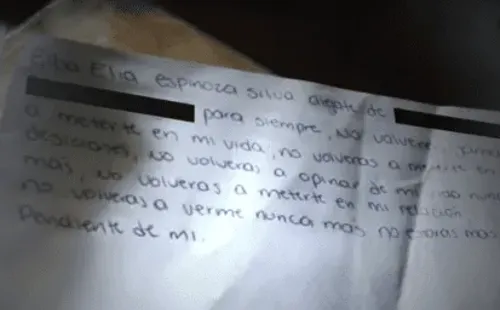 Elia espinoza silva alejate de
para siempre, No volveras
a meterte en mi vida, no volveras a meterte en
desiciones, No volveras a opinar de mi
mas, No volveras a meterte en mi relacion
no volveras a verme nunca mas no estaras mas
Pendiente de mi.